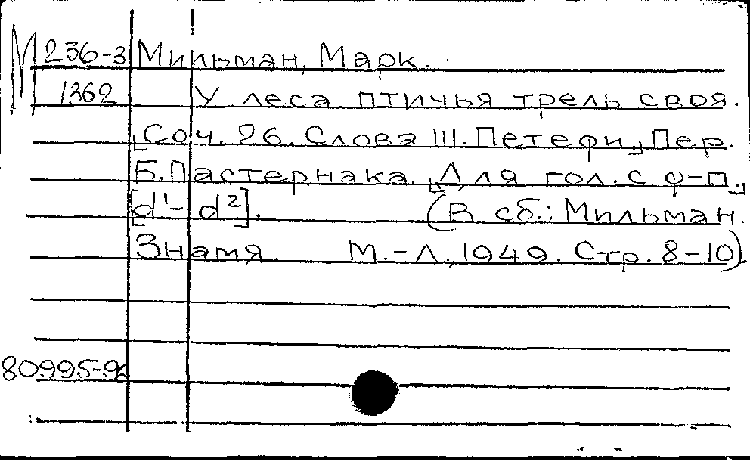 М 236-3 Мильман, Марк.
1362 У леса птичья трель своя.
Соч. 26. Слова Ш. Петефи, Пер.
Б. Пастернака. Для гол. с ф-п.
[d¹-d²]. (В сб.: Мильман.
Знамя М.-Л., 1949. Стр. 8-10)